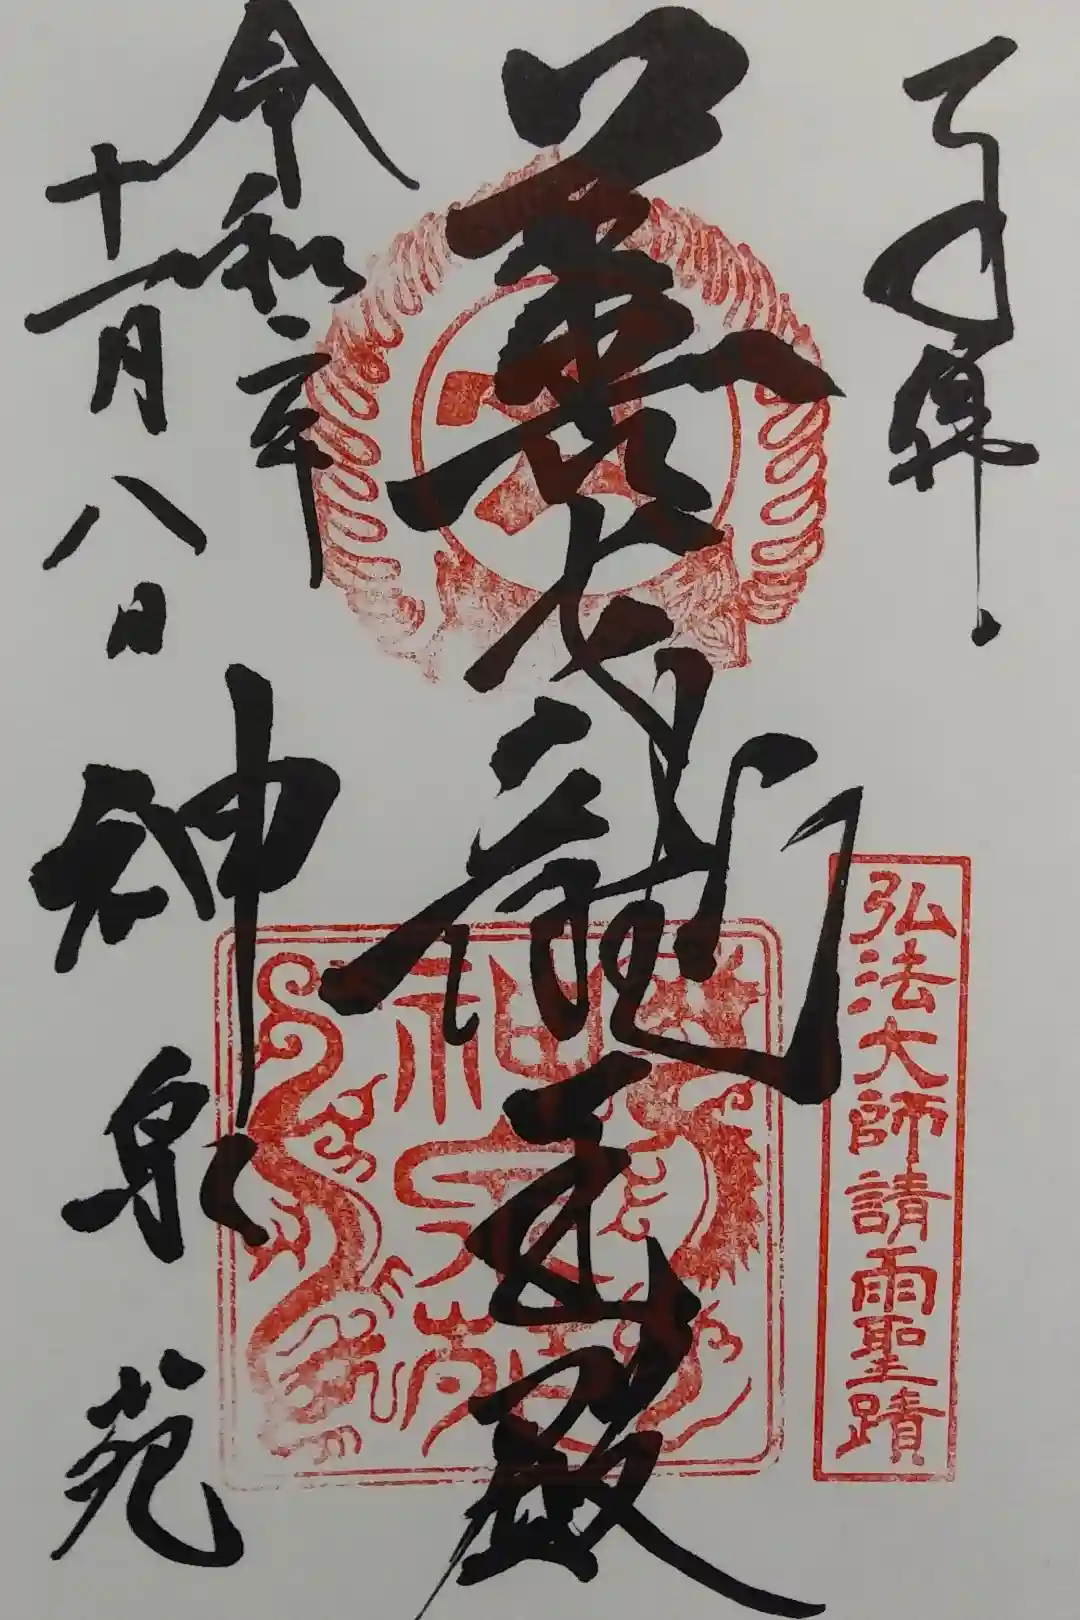 奉拝
弘法大師請雨聖蹟
善女龍王殿
令和二年
十一月八日
神泉苑